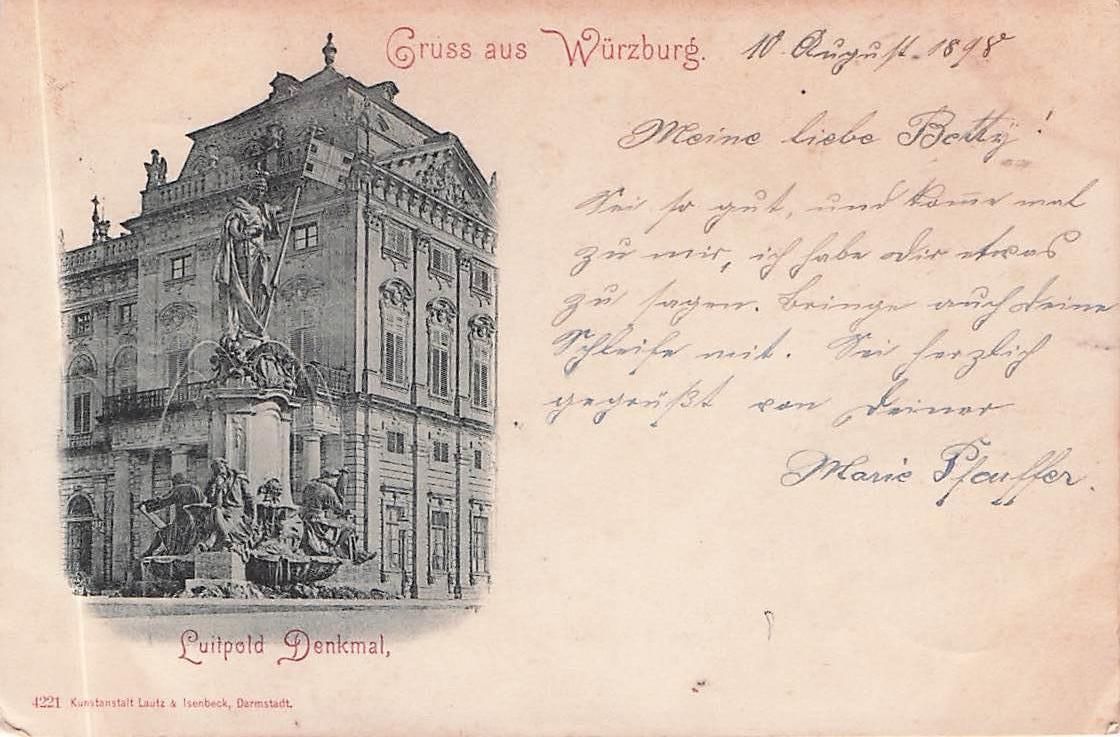 Gruss aus Würzburg.
10. August. 1898
Meine liebe Betty!
Sei so gut, und kom̅e mal
zu mir, ich habe dir etwas
zu sagen. Bringe auch deine
Schleife mit. Sei herzlich
gegrüßt von deiner
Marie Pfeuffer.
Luitpold Denkmal,
4221 Kunstanstalt Lautz & Isenbeck, Darmstadt.